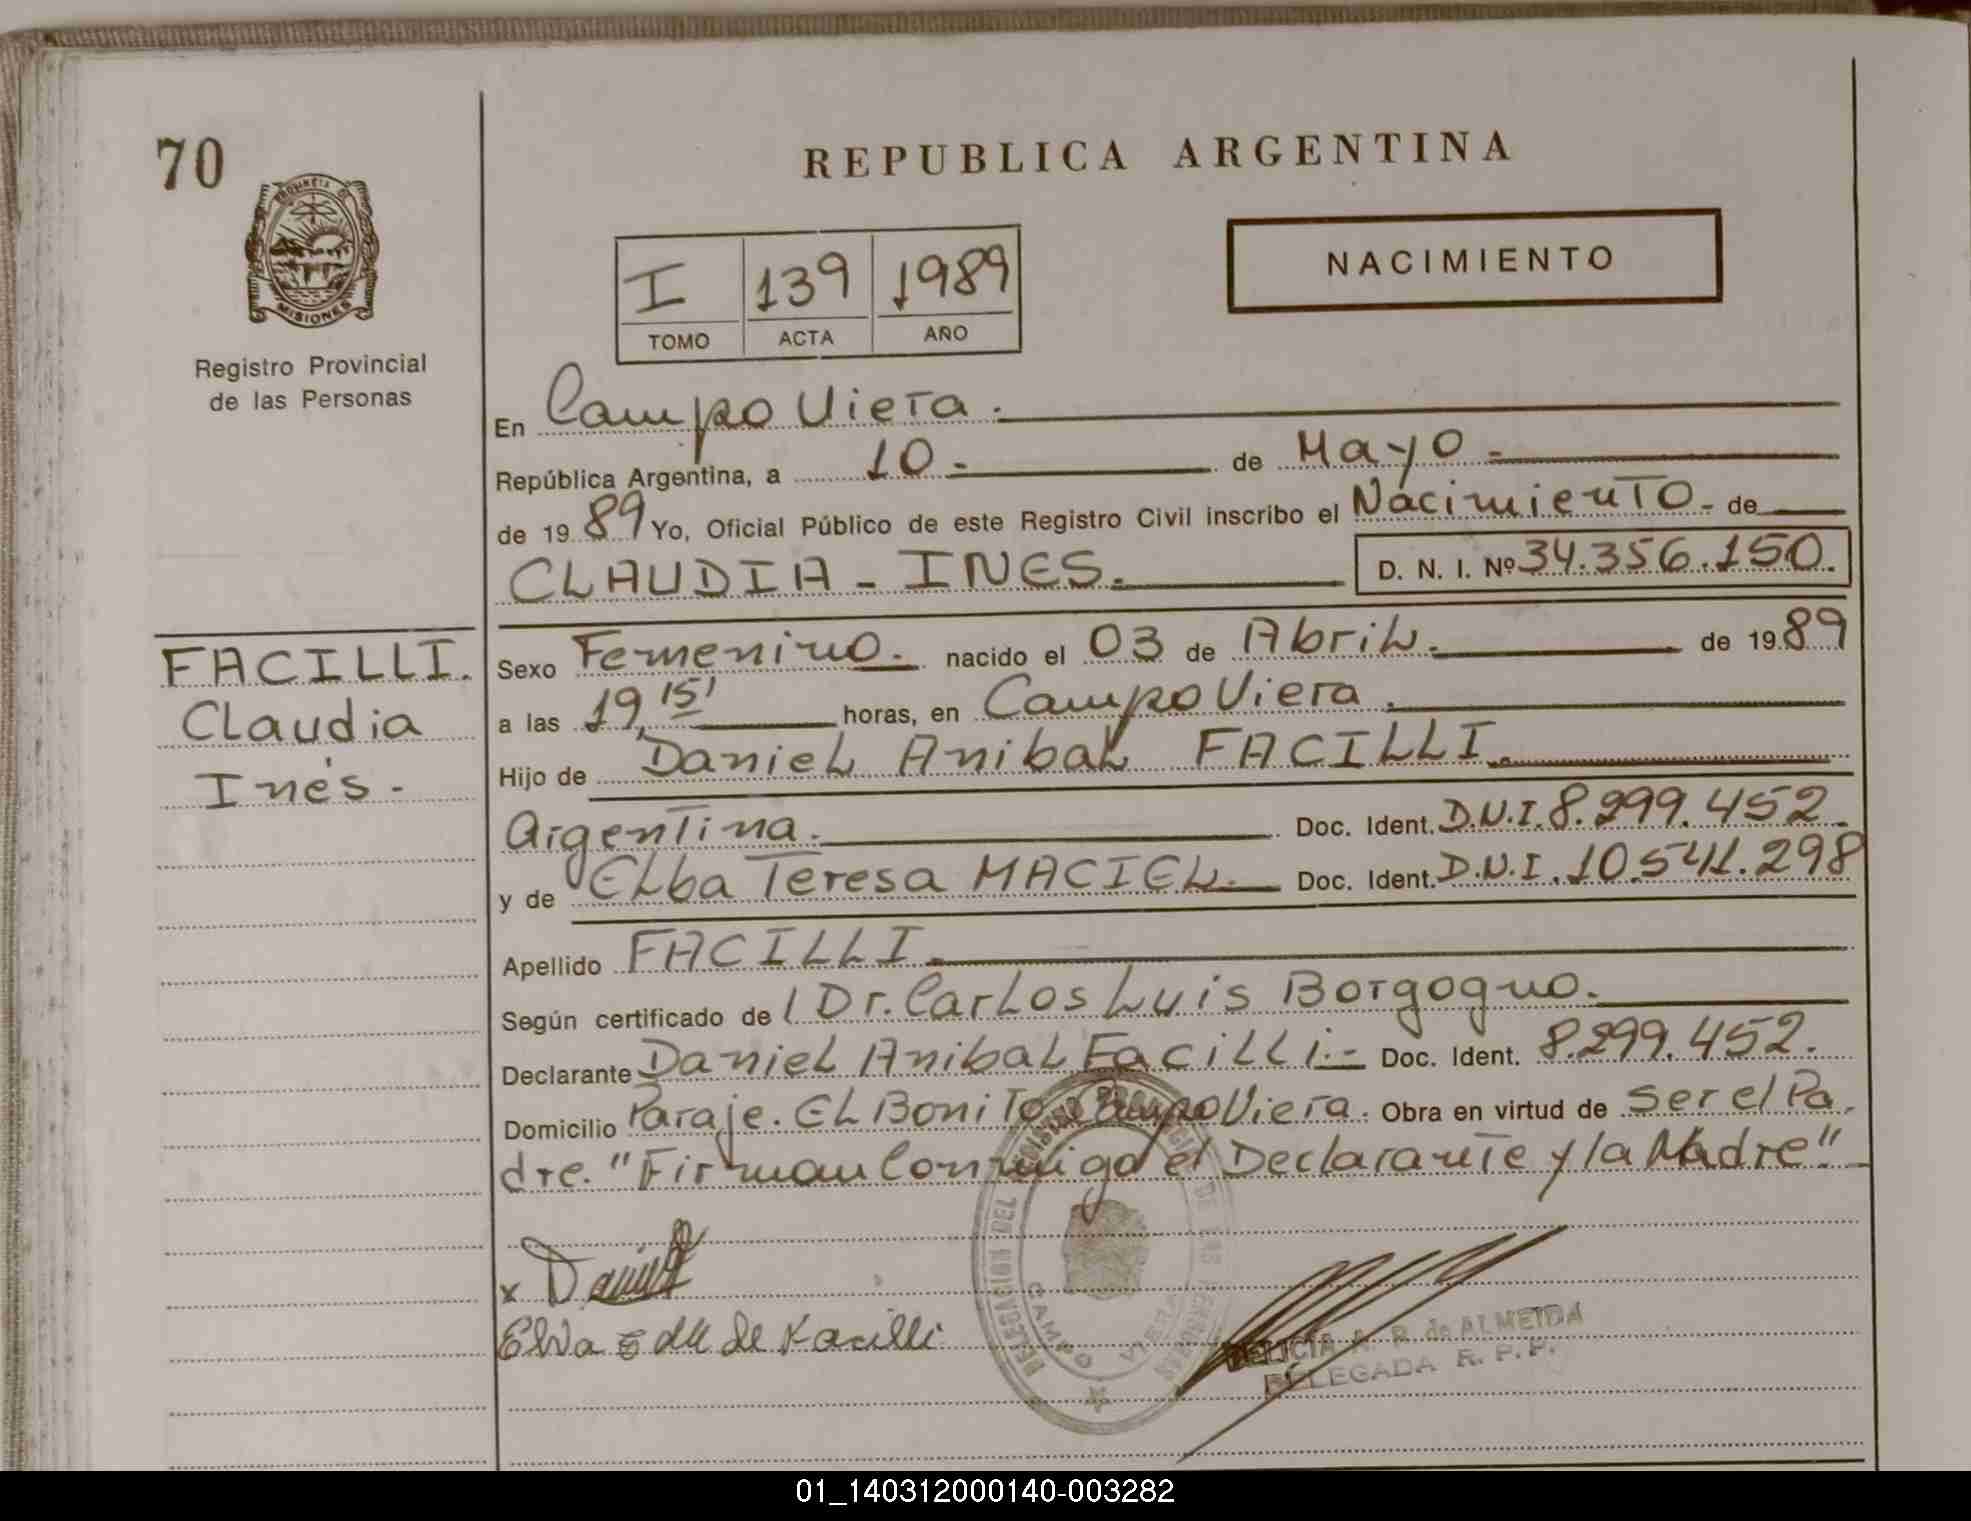 70
REPUBLICA ARGENTINA
PROVINCIA D
MISIONES
Registro Provincial
de las Personas
NACIMIENTO
I 139 1989
TOMO ACTA AÑO
En Campo Viera.
República Argentina, a 10- de Mayo-
de 1989 Yo, Oficial Público de este Registro Civil inscribo el Nacimiento- de
CLAUDIA - INES. D. N. I. Nº 34.356.150.
FACILLI.
Claudia
Inés.-
Sexo Femenino. nacido el 03 de Abril. de 1989
a las 19,15' horas, en Campo Viera.
Hijo de Daniel Anibal FACILLI.
Argentina. Doc. Ident. D.N.I. 8.299.452.
y de Elba Teresa MACIEL. Doc. Ident. D.N.I. 10.541.298
Apellido FACILLI.
Según certificado de l Dr. Carlos Luis Borgogno.
Declarante Daniel Anibal Facilli.- Doc. Ident. 8.299.452.
Domicilio Paraje. El Bonito Campo Viera. Obra en virtud de ser el Pa
dre. "Firman Conmigo el Declarante y la Madre".
x Daniel
de Facilli
DELEGACION DEL REGISTRO PROVINCIAL DE LAS PERSONAS
CAMPO VIERA
FELICIA A. R. de ALMEIDA
DELEGADA R. P. P.
01_140312000140-003282